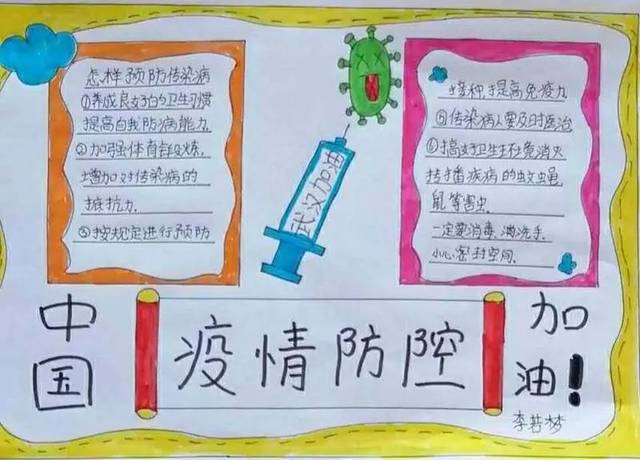 怎样预防传染病
①养成良好的卫生习惯
提高自我防病能力.
②加强体育锻炼.
增加对传染病的
抵抗力.
③按规定进行预防
接种,提高免疫力
传染病人要及时医治
搞好卫生环境消灭
传播疾病的蚊蝇
鼠等害虫.
一定要消毒 勤洗手
小心密封空间.
武汉加油
中国
疫情防控
加油!
李若梦